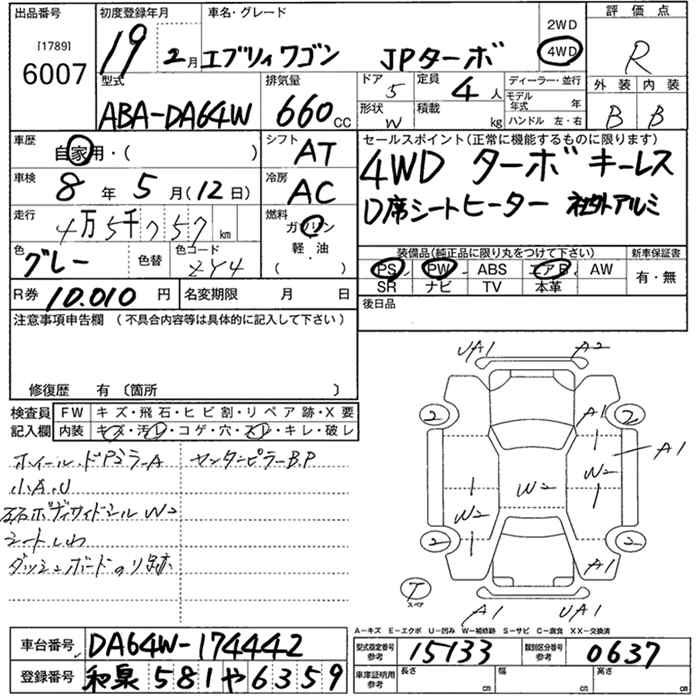 出品番号 初度登録年月 車名・グレード 評価点
[1789]
6007
19 2月 エブリィワゴン JPターボ 2WD 4WD R
型式 排気量 ドア 定員 ディーラー・並行 外装 内装
ABA-DA64W 660cc 5 4人 モデル年式 年 B B
形状 W 積載 kg ハンドル 左・右
車歴 シフト セールスポイント(正常に機能するものに限ります)
自家用・( ) AT 4WD ターボ キーレス
車検 冷房
8年 5月(12日) AC D席シートヒーター 社外アルミ
走行 燃料
4万5千757km ガソリン
軽・油
( )
色 色替 色コード 装備品(純正品に限り丸をつけて下さい) 新車保証書
グレー ZY4 PS PW ABS エアB AW 有・無
SR ナビ TV 本革
R券 10.010円 名変期限 月 日 後日品
注意事項申告欄 (不具合内容等は具体的に記入して下さい)
修復歴 有 〔箇所 〕
検査員 FW キズ・飛石・ヒビ割・リペア跡・X要
記入欄 内装 キズ・汚レ・コゲ・穴・スレ・キレ・破レ
小A.U
シートしわ
UA1 A2
A1
2 2
A1
W2
W2
W2
2 2
A1
T
スペア
A1 UA1
A-キズ E-エクボ U-凹み W-補修跡 S-サビ C-腐食 XX-交換済
車台番号 DA64W-174442 型式指定番号 参考 15133 類別区分番号 参考 0637
登録番号 和泉 581 や 6359 車庫証明用 参考 長さ cm 幅 cm 高さ cm